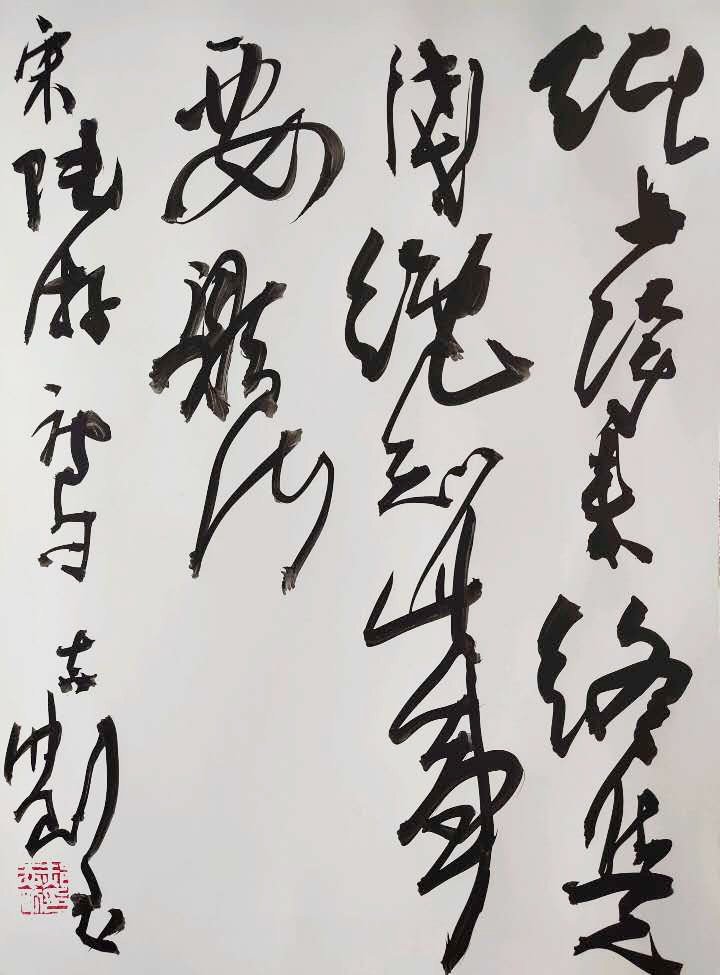 纸上得来终觉
浅绝知此事
要躬行
宋陆游诗句 志刚书